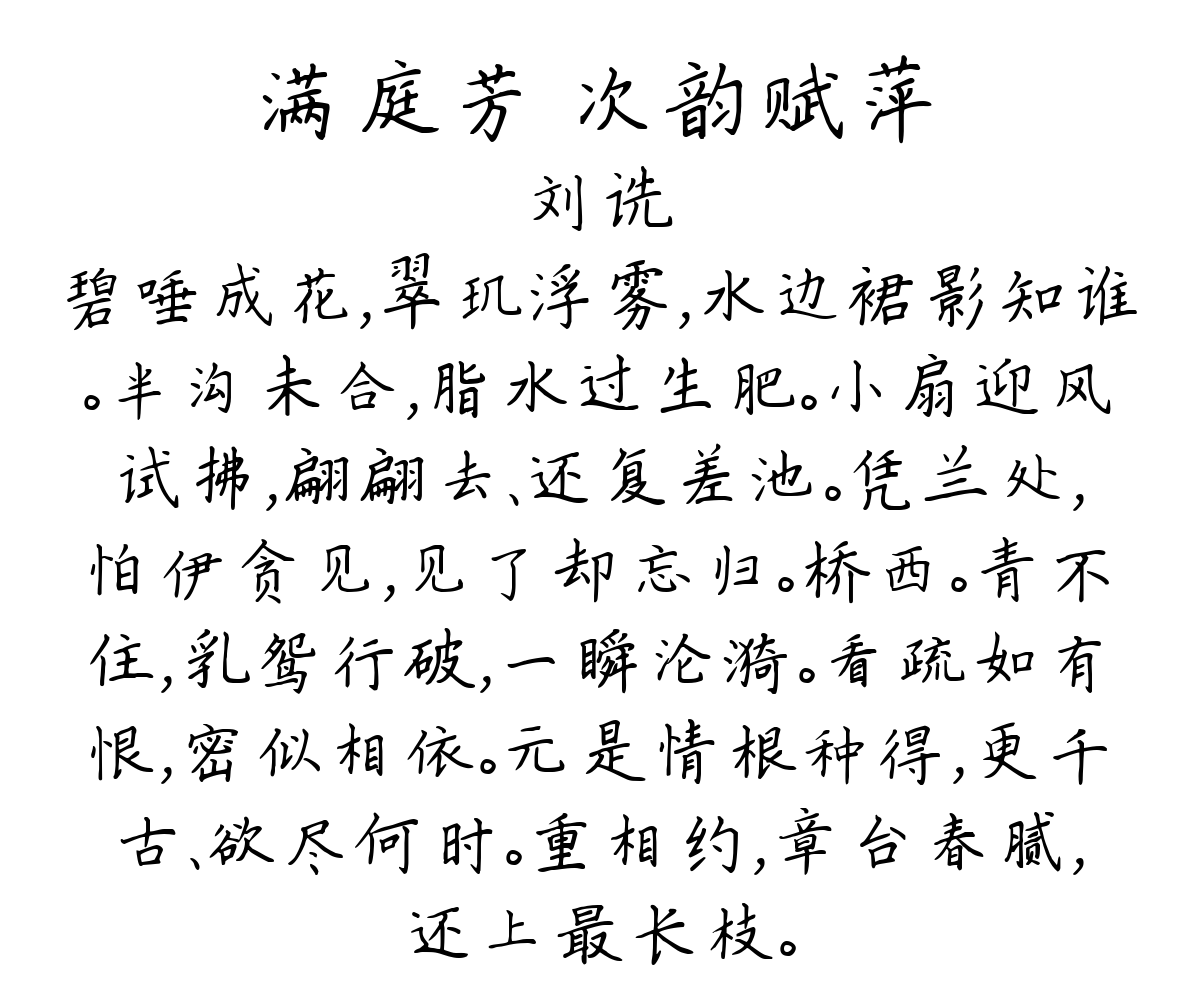 满庭芳 次韵赋萍
刘诜
碧唾成花,翠玑浮雾,水边裙影知谁
。半沟未合,脂水过生肥。小扇迎风
试拂,翩翩去、还复差池。凭兰处,
怕伊贪见,见了却忘归。桥西。青不
住,乳鸳行破,一瞬沦漪。看疏如有
恨,密似相依。元是情根种得,更千
古、欲尽何时。重相约,章台春腻,
还上最长枝。